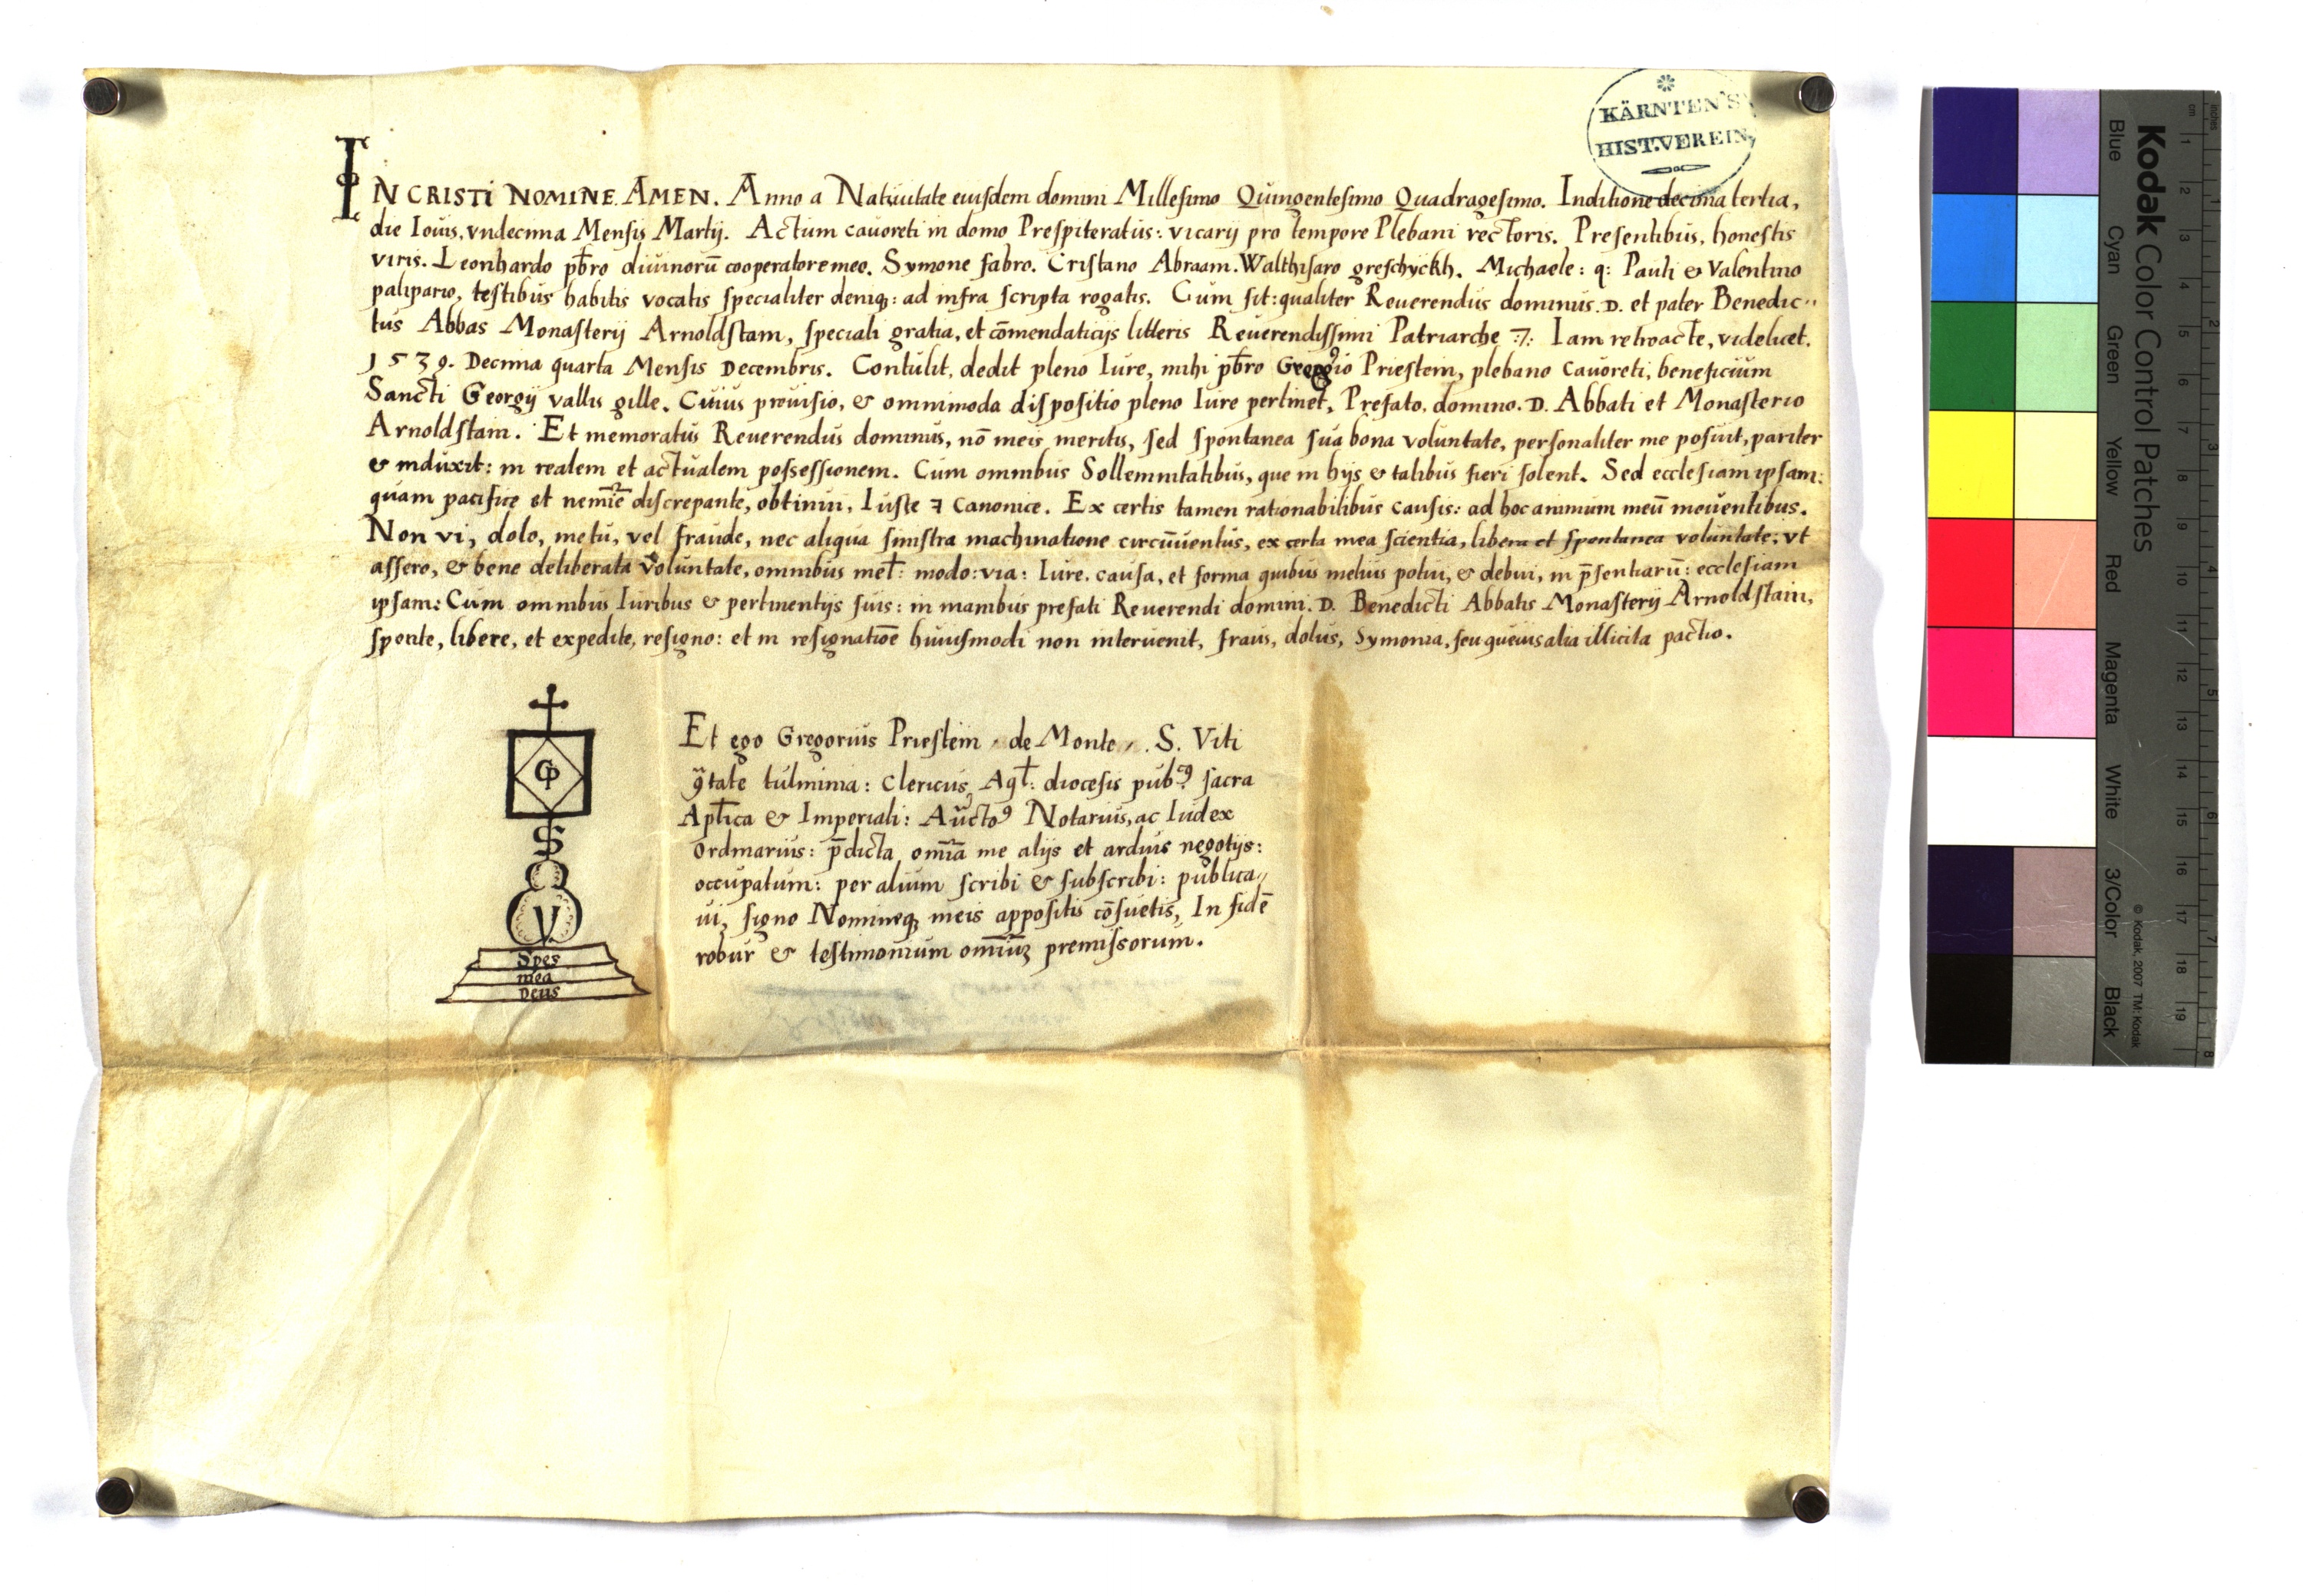 KÄRNTEN'S
HIST.VEREIN
IN CRISTI NOMINE AMEN. Anno a Natiuitate eiusdem domini Millesimo Quingentesimo Quadragesimo. Inditione decima tertia,
die Iouis, vndecima Mensis Martij. Actum cauoreti in domo Prespiteratus: vicarij pro tempore Plebani rectoris. Presentibus, honestis
viris. Leonhardo pb̄ro diuinorū cooperatore meo. Symone fabro. Cristano Abraam. Walthisaro greschyckh. Michaele: q: Pauli & Valentino
palipario, testibus habitis vocatis specialiter deniq;: ad infra scripta rogatis. Cum sit: qualiter Reuerendus dominus. D. et pater Benedic-
tus Abbas Monasterij Arnoldstain, speciali gratia, et cōmendaticijs litteris Reuerendissimi Patriarche :7: Iam retroacte, videlicet.
1539. Decima quarta Mensis Decembris. Contulit, dedit pleno Iure, mihi pb̄ro Priestein, plebano Cauoreti, beneficium
Sancti Georgij vallis gille. Cuius prouisio, & omnimoda dispositio pleno Iure pertinet, Prefato. domino. D. Abbati et Monasterio
Arnoldstain. Et memoratus Reuerendus dominus, nō meis meritis, sed spontanea sua bona voluntate, personaliter me posuit, pariter
& induxit: in realem et actualem possessionem. Cum omnibus Sollemnitatibus, que in hijs & talibus fieri solent. Sed ecclesiam ipsam:
quam pacifice et nemīe discrepante, obtinui, Iuste ⁊ Canonice. Ex certis tamen rationabilibus causis: ad hoc animum meū mouentibus.
Non vi, dolo, metu, vel fraude, nec aliqua sinistra machinatione circūuentus, ex certa mea scientia, libera et spontanea voluntate, vt
assero, & bene deliberata voluntate, omnibus mel̄: modo: via: Iure. causa, et forma quibus melius potui, & debui, in p̄sentiarū: ecclesiam
ipsam: Cum omnibus Iuribus & pertinentijs suis: in manibus prefati Reuerendi domini. D. Benedicti Abbatis Monasterij Arnoldstain,
sponte, libere, et expedite, resigno: et in resignatiōe huiusmodi non interuenit, fraus, dolus, Symonia, seu queuis alia illicita pactio.
GP
S
V
Spes
mea
Deus
Et ego Gregorius Priestein de Monte S. Viti
tulminia: Clericus Aql̄: diocesis pub⁹ sacra
Apl̄ica & Imperiali: Aucto⁹ Notarius, ac Iudex
Ordinarius: p̄dicta om̄ia me alijs et arduis negotijs:
occupatum: per alium scribi & subscribi: publica-
ui, signo Nomineq; meis appositis cōsuetis, In fidē
robur & testimonium om̄iuȝ premissorum.
Kodak Color Control Patches
Blue Cyan Green Yellow Red Magenta White 3/Color Black
© Kodak, 2007 TM: Kodak
inches 1 2 3 4 5 6 7 8
cm 1 2 3 4 5 6 7 8 9 10 11 12 13 14 15 16 17 18 19